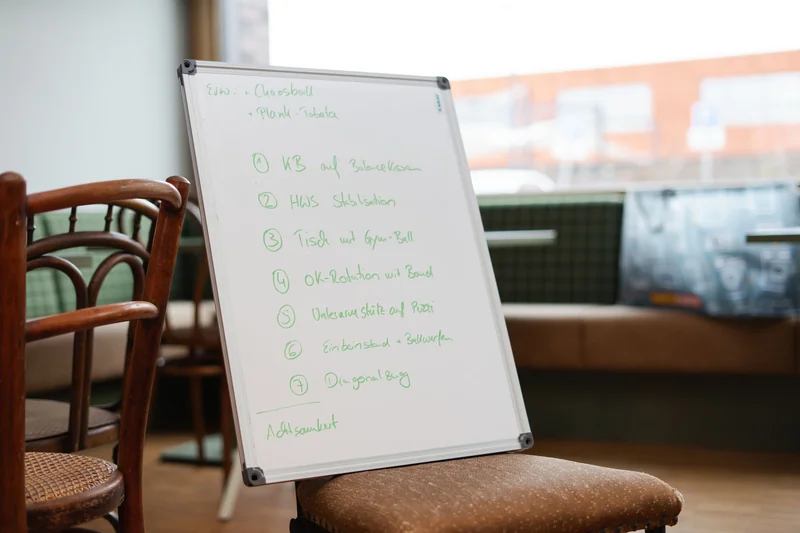 Erw.: + Choosball
+ Plank-Tabata
① KB auf Balancekissen
② HWS Stabilisation
③ Tisch mit Gym-Ball
④ OK-Rotation mit Band
⑤ Unterarmstütz auf Pezzi
⑥ Einbeinstand + Ballwerfen
⑦ Diagonalzug
Achtsamkeit